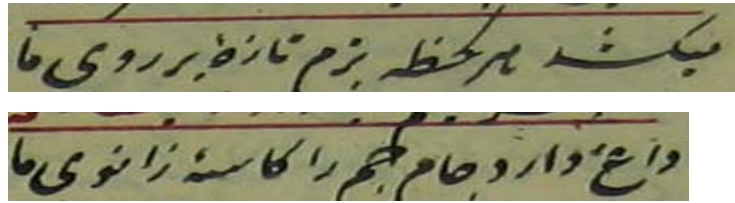 میکشد هر لحظه بزم تازهٔ بر روی ما
داغ دارد جام جم را کاسهٔ زانوی ما